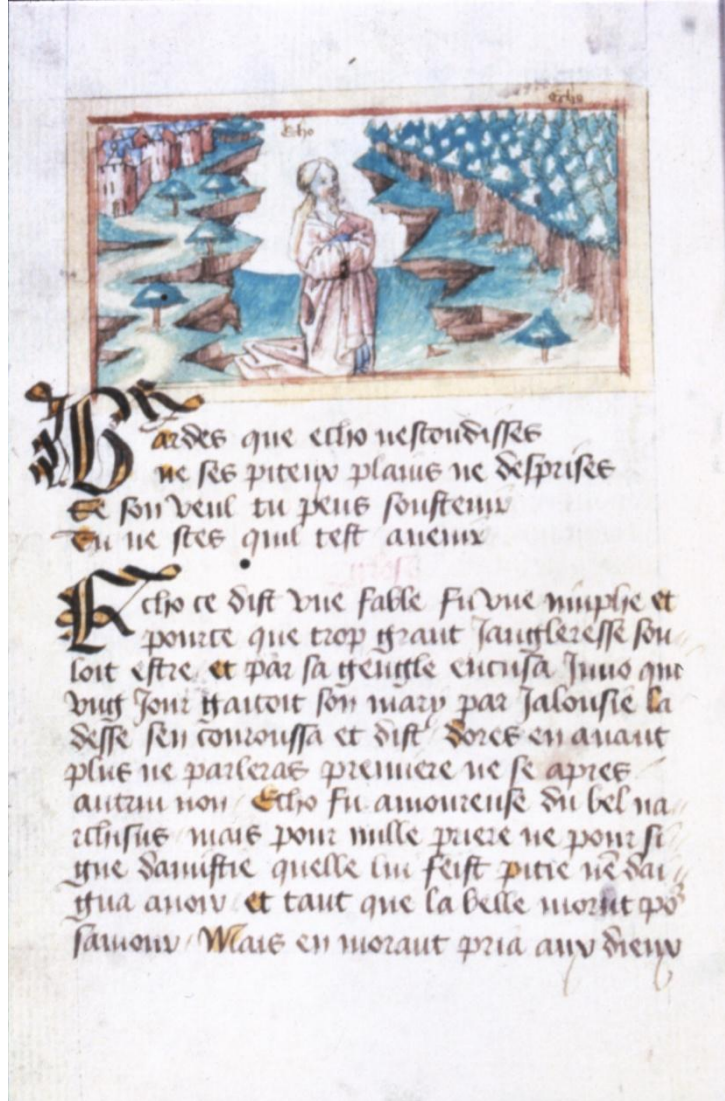 Echo
Echo
Gardes que echo nescondisses
ne ses piteux plains ne desprises
Se son veul tu peus soustenir
Tu ne sces quil test avenir
Echo ce dist vne fable fu vne nimphe et
pource que trop grant Jangleresse sou
loit estre et par sa gengle encusa Juno qui
vng Jour gaitoit son mary par Jalousie la
desse sen couroussa et dist dores en auant
plus ne parleras premiere ne se apres
autrui non Echo fu amoureuse du bel na
rchisus mais pour nulle priere ne pour si
gne damistie quelle lui feist pitie nē dai
gna auoir et tant que la belle morut po
samour Mais en morant pria aux dieux